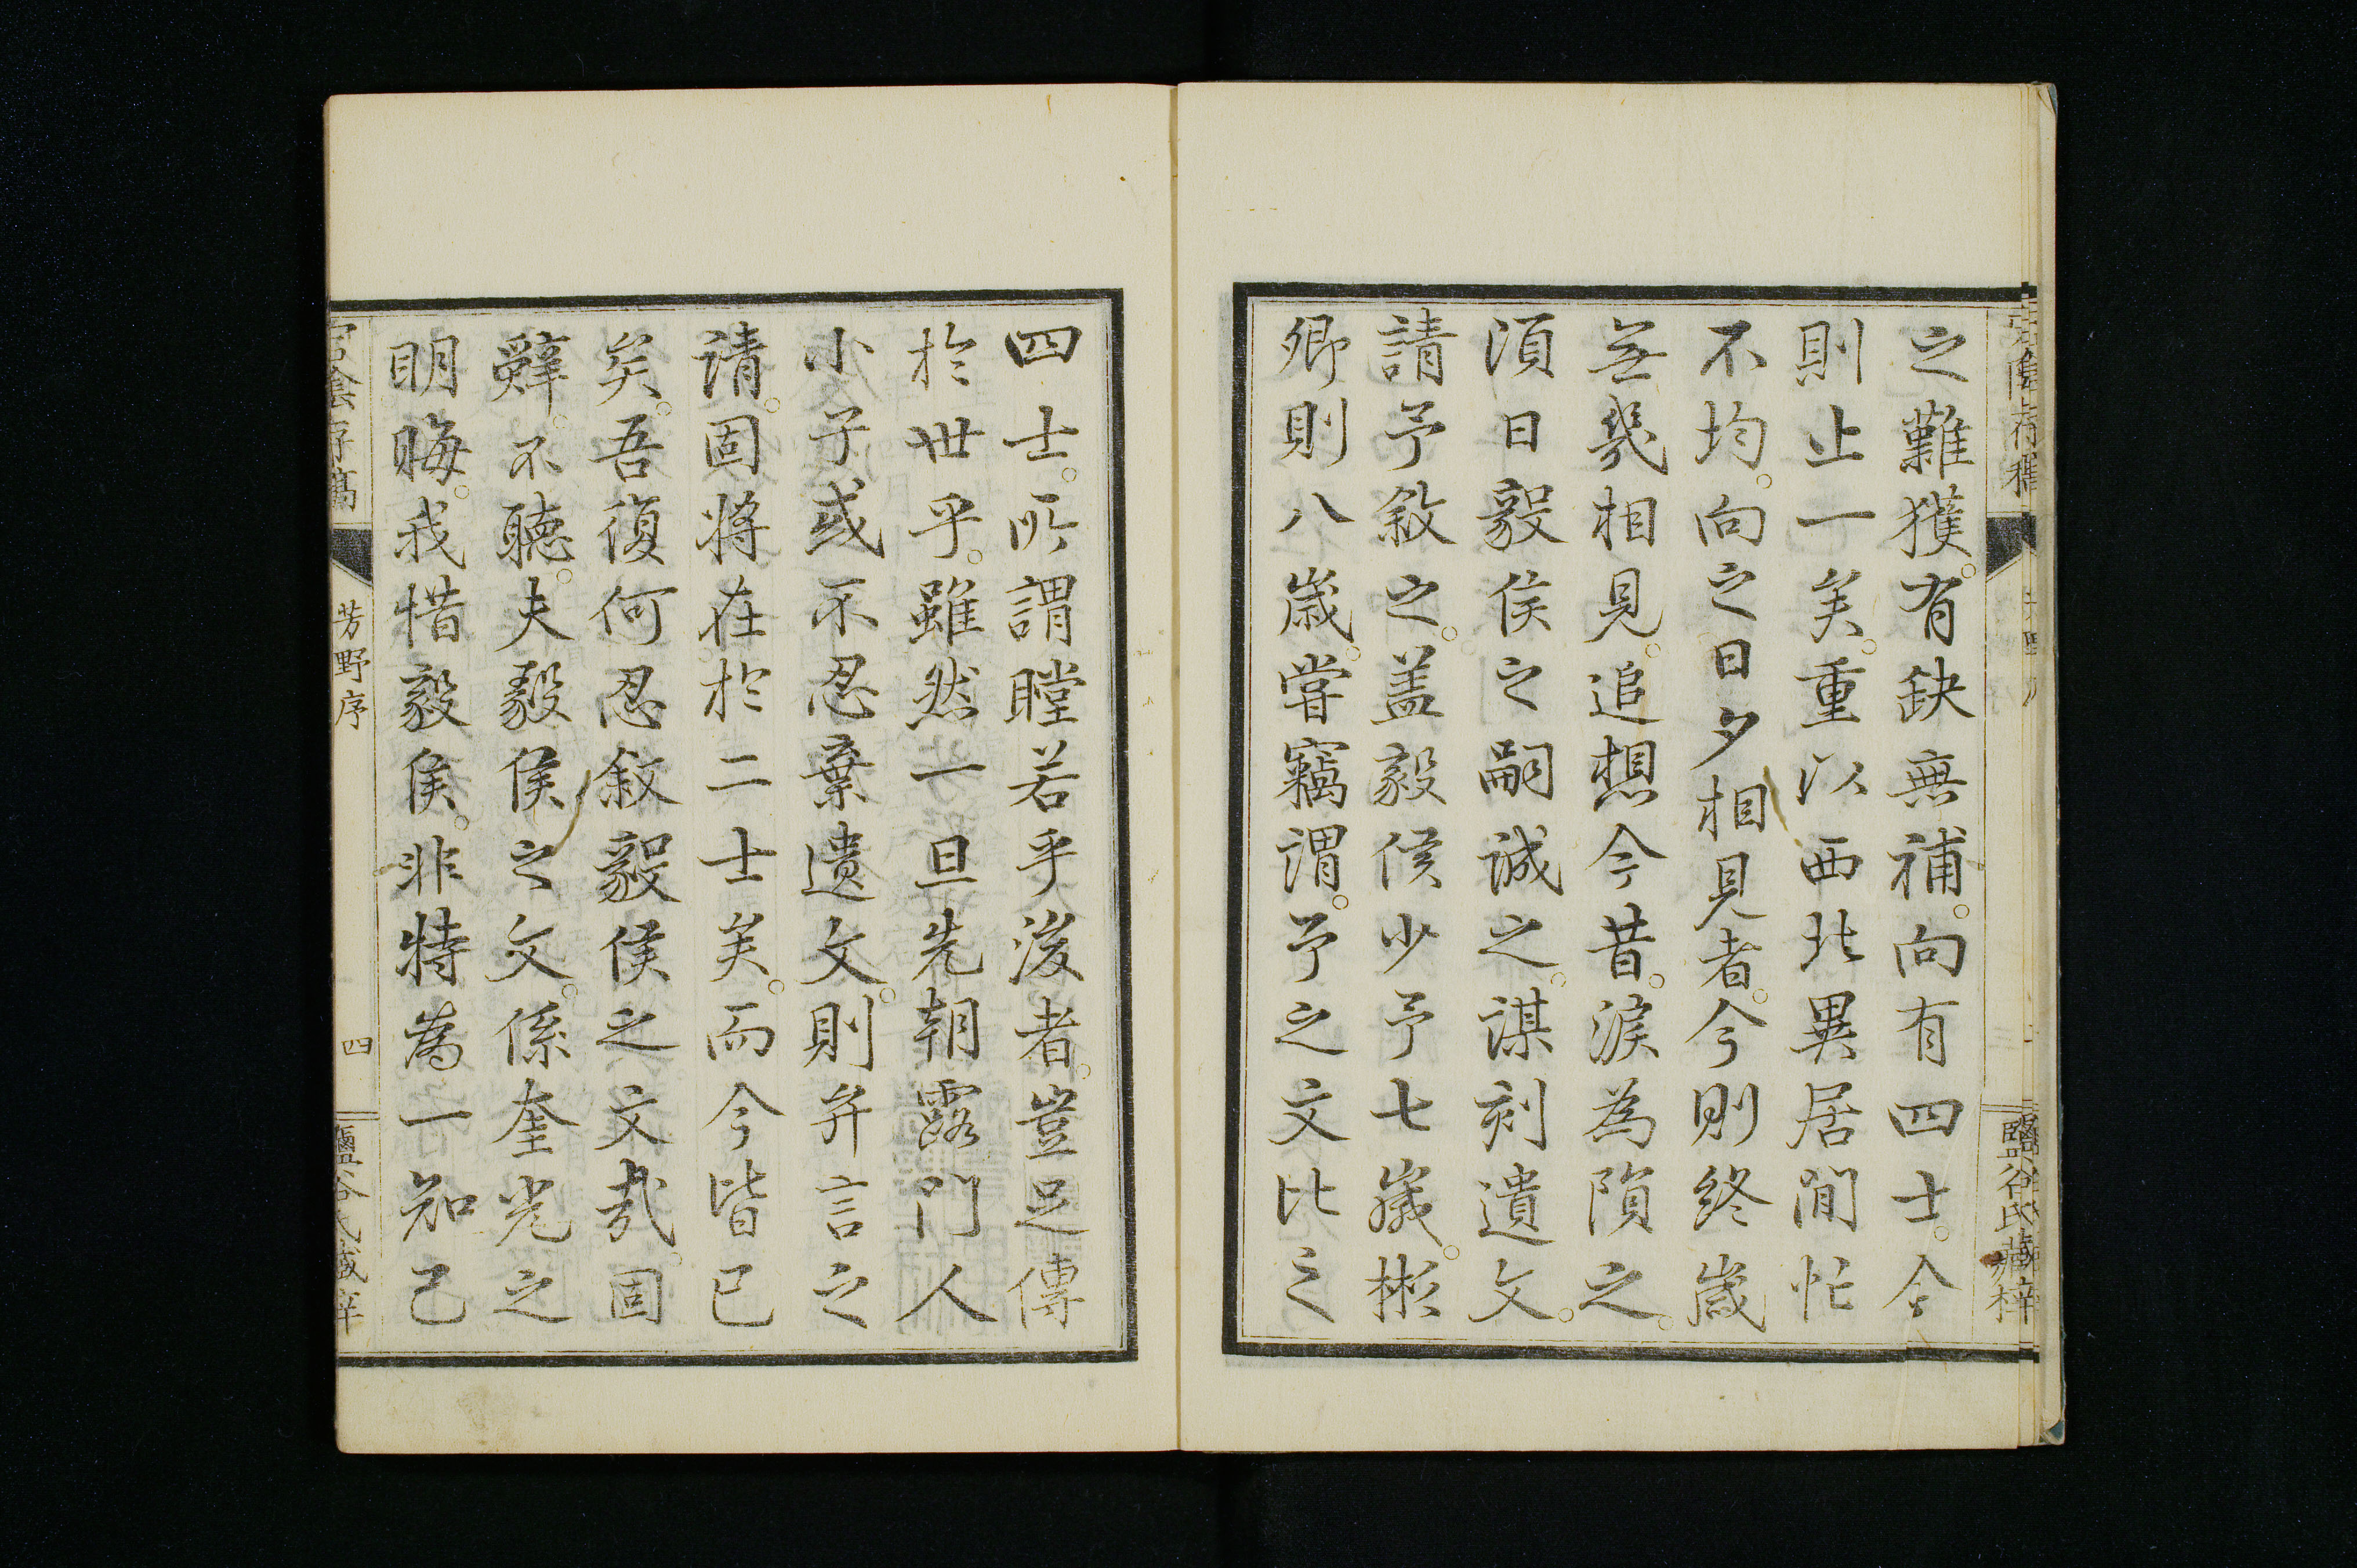 之難獲。有缺無補。向有四士。今
則止一矣。重以西北異居間忙
不均。向之日夕相見者。今則終歲
無幾相見。追想今昔。淚為隕之。
須日毅侯之嗣誠之。謀刻遺文。
請予敘之。蓋毅侯少予七歲。彬
卿則八歲。嘗竊謂。予之文比之
鹽谷氏藏梓
四士。所謂瞠若乎後者。豈足傳
於世乎。雖然一旦先朝露。門人
小子或不忍棄遺文。則弁言之
請。固將在於二士矣。而今皆已
矣。吾復何忍敘毅侯之文哉。固
辭。不聽。夫毅侯之文。係奎光之
明晦。我惜毅侯。非特為一知己
宕陰存稿
芳野序
四
鹽谷氏藏梓